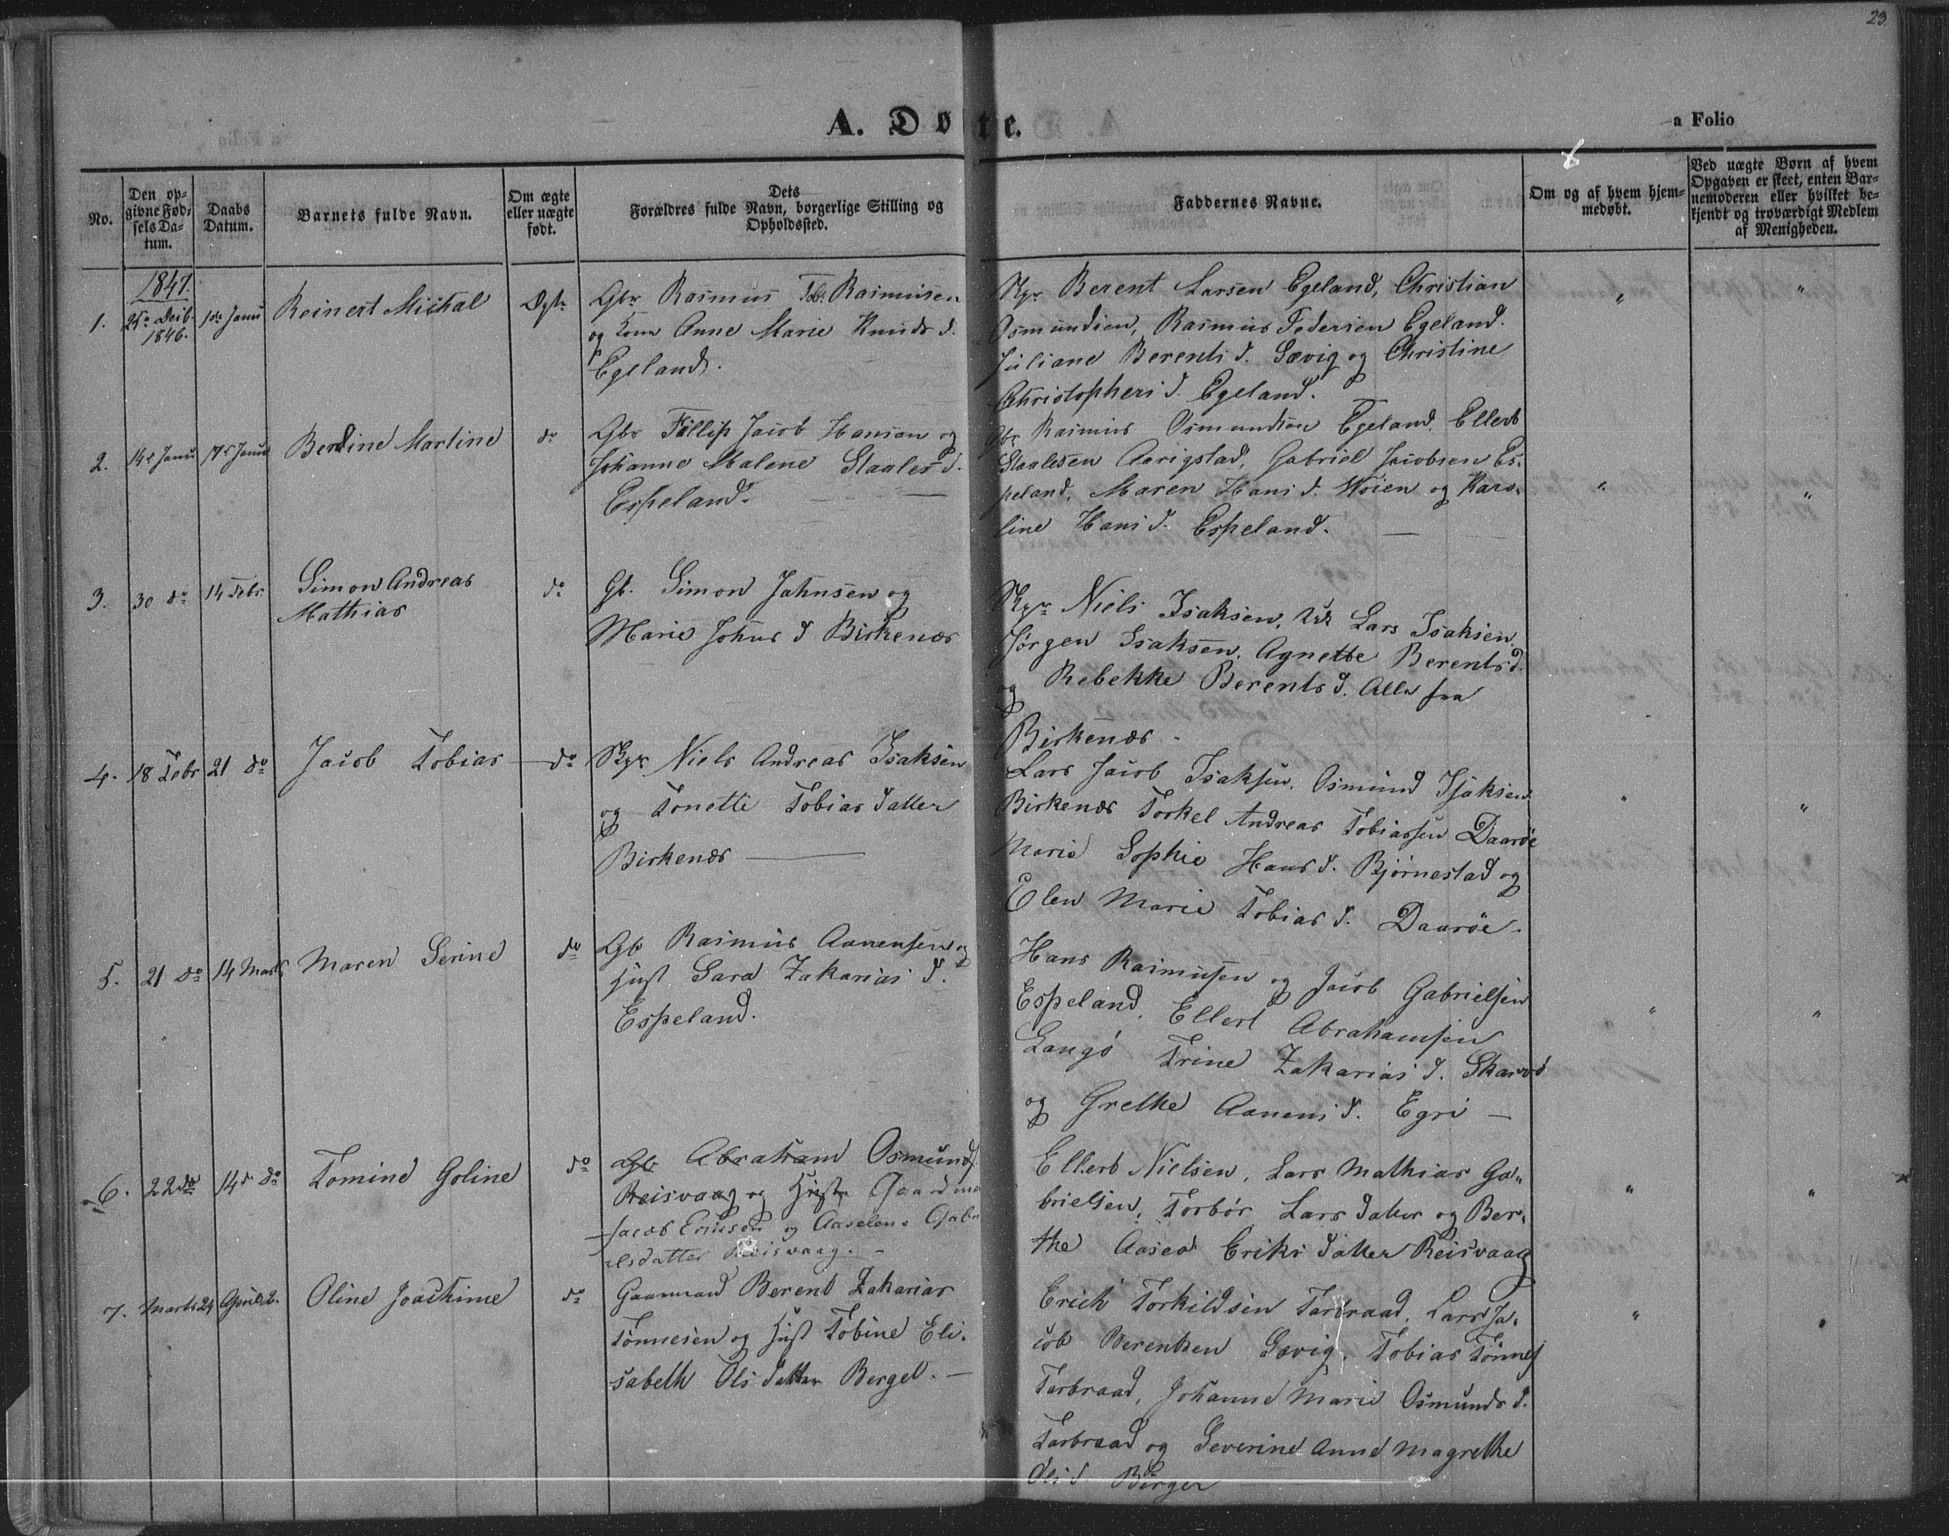 23.
A. Døbte.
a Folio
No.
Den opgivne Fødselsdatum.
Daabs Datum.
Barnets fulde Navn.
Om ægte eller uægte født.
Dets Forældres fulde Navn, borgerlige Stilling og Opholdssted.
Faddernes Navne.
Om og af hvem hjemmedøbt.
Ved uægte Børn af hvem Opgaven er skeet, enten Barnemoderen eller hvilket bekjendt og troværdigt Medlem af Menigheden.
1847.
1.
25de Decb. 1846.
1de Janu
Reinert Michal
Ægte
Gbr Rasmus Tob. Rasmusen
og Kone Anne Marie Knuds d.
Egeland.
Berent Larsen Egeland, Christian
Osmundsen, Rasmus Pedersen Egeland.
Juliane Berents d. Sævig og Christine
Christophers d. Egeland.
2.
14de Janu
17de Janu
Berdine Martine
do
Gbr Fillip Jacob Hansen og
Johanne Malene Staales d.
Espeland.
Gbr Rasmus Osmundsen Egeland, Ellert
Staalesen Aarigstad, Gabriel Jacobsen Es-
peland, Maren Hans d. Moien og Karo-
line Hans d. Espeland.
3.
30 do
14 Febr.
Simon Andreas
Mathias
do
Gb. Simon Jahnsen og
Marie Johns d Birkenæs
Niels Isaksen, Lars Isaksen
Jørgen Isaksen. Agnette Berentsd.
og Rebekke Berents d. Alle fra
Birkenæs.
4.
18 Febr
21 do
Jacob Tobias
do
Niels Andreas Isaksen
og Tonette Tobias datter
Birkenæs
Lars Jacob Isaksen, Osmund Isaksen
Birkenæs Torkel Andreas Tobiassen Daarøe
Marie Sophie Hans d. Bjørnestad og
Elen Marie Tobias d. Daarøe.
5.
21 do
14 Marts
Maren Serine
do
Gb Rasmus Aanensen og
Hust Sara Zakarias d.
Espeland.
Hans Rasmusen og Jacob Gabrielsen
Espeland, Ellert Abrahamsen
Langø Trine Zakarias d.
og Grethe Aanens d. Egri
6.
22 do
14de do
Tomine Goline
do
Gb Abraham Osmunds
Reisvaag og Hustr Gaardma
Jacob Ericsen og Aaselene Gabri
elsdatter Reisvaag.
Ellert Nielsen, Lars Mathias Ga-
brielsen, Torbør Lars datter og Ber-
the Aasea Eriks datter Reisvaag
7.
Marts 24
April 2.
Oline Joachime
do
Gaarmand Berent Zakarias
Tønnesen og Hust Tobine Eli-
sabeth Ols datter Berget.
Erich Torkildsen Tarbraad, Lars Ja-
cob Berentsen Sævig, Tobias Tønnes
Tarbraad, Johanne Marie Osmunds d.
Tarbraad og Severine Anne Magrethe
Ols d Berger